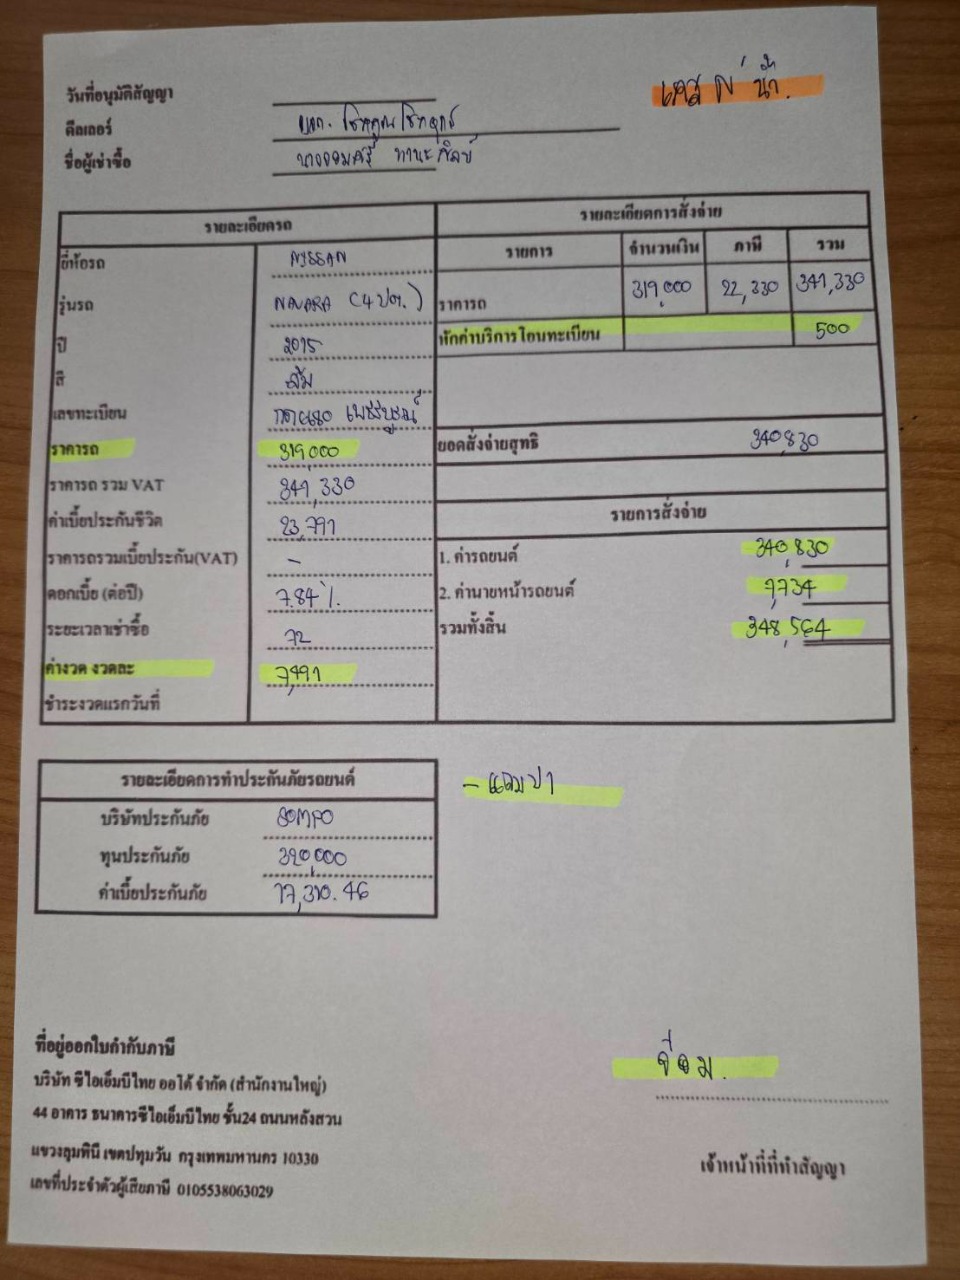 เคส พี่ น้ำ.
วันที่อนุมัติสัญญา
ดีลเลอร์ บจก. โชคคูณโชค
ชื่อผู้เช่าซื้อ
รายละเอียดรถ
ยี่ห้อรถ NISSAN
รุ่นรถ NAVARA (4 ปต.)
ปี 2015
สี ส้ม
เลขทะเบียน เพชรบูรณ์
ราคารถ 319,000
ราคารถ รวม VAT 341,330
ค่าเบี้ยประกันชีวิต 23,791
ราคารถรวมเบี้ยประกัน(VAT) -
ดอกเบี้ย (ต่อปี) 7.84%
ระยะเวลาเช่าซื้อ 72
ค่างวด งวดละ 7,491
ชำระงวดแรกวันที่
รายละเอียดการสั่งจ่าย
รายการ จำนวนเงิน ภาษี รวม
ราคารถ 319,000 22,330 341,330
หักค่าบริการโอนทะเบียน 500
ยอดสั่งจ่ายสุทธิ 340,830
รายการสั่งจ่าย
1. ค่ารถยนต์ 340,830
2. ค่านายหน้ารถยนต์ 7,734
รวมทั้งสิ้น 348,564
รายละเอียดการทำประกันภัยรถยนต์
บริษัทประกันภัย SOMPO
ทุนประกันภัย 320,000
ค่าเบี้ยประกันภัย 17,310.46
- แถมป1
ที่อยู่ออกใบกำกับภาษี
บริษัท ซีไอเอ็มบีไทย ออโต้ จำกัด (สำนักงานใหญ่)
44 อาคาร ธนาคารซีไอเอ็มบีไทย ชั้น24 ถนนหลังสวน
แขวงลุมพินี เขตปทุมวัน กรุงเทพมหานคร 10330
เลขที่ประจำตัวผู้เสียภาษี 0105538063029
เจ้าหน้าที่ที่ทำสัญญา